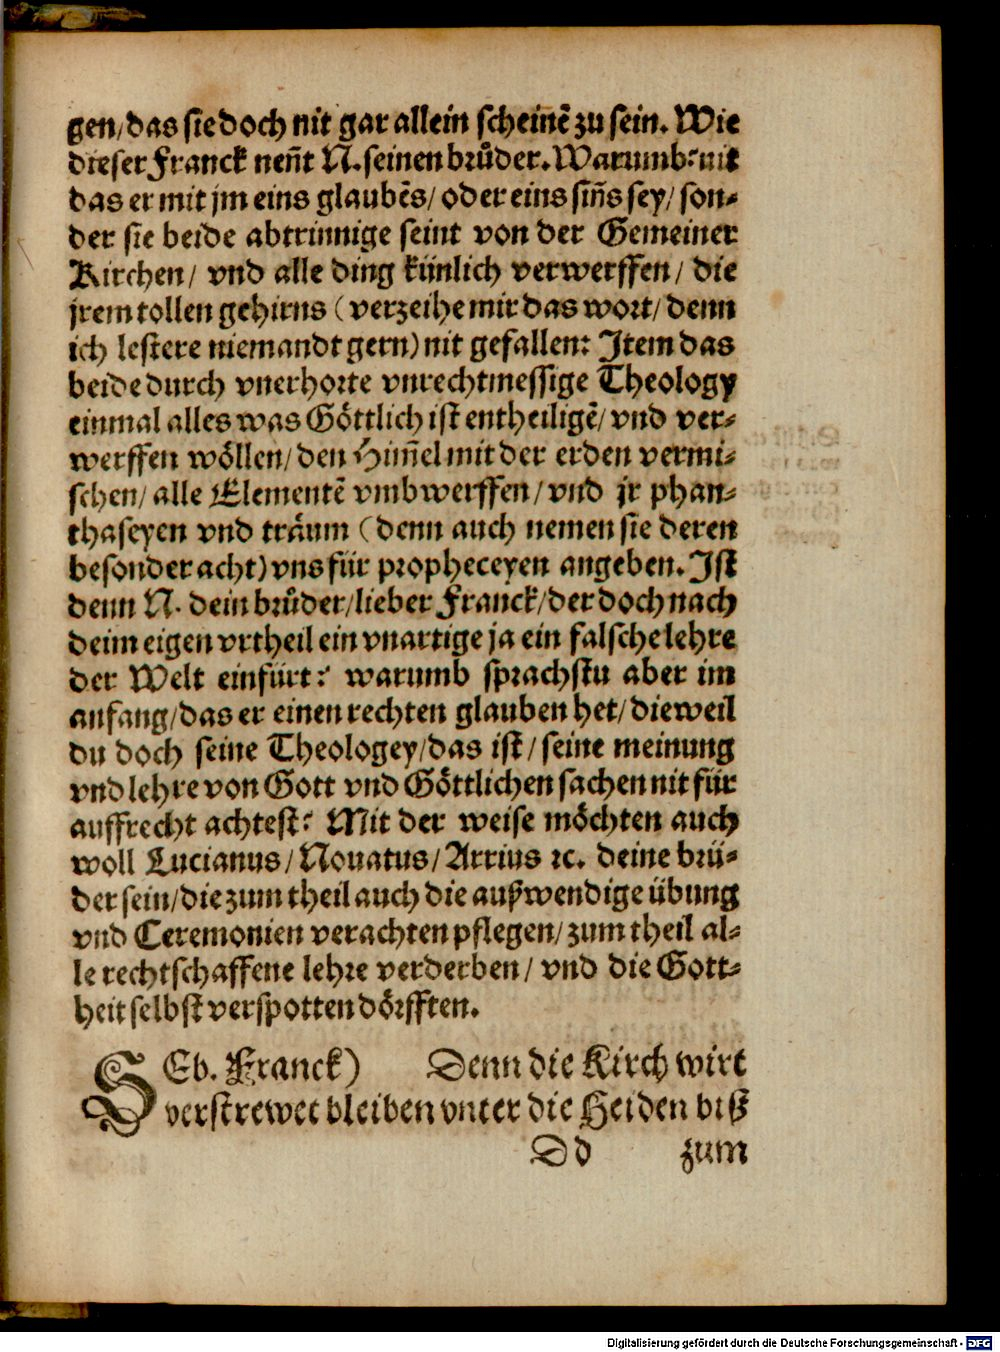 gen/das sie doch nit gar allein scheinē zu sein. Wie
dieser Franck neñt N. seinen brůder. Warumb? nit
das er mit jm eins glaubēs/ oder eins siñs sey/ son-
der sie beide abtrinnige seint von der Gemeiner
Kirchen/ vnd alle ding künlich verwerffen/ die
jrem tollen gehirns (verzeihe mir das wort/ denn
ich lestere niemandt gern) nit gefallen: Item das
beide durch vnerhorte vnrechtmessige Theology
einmal alles was Göttlich ist entheiligē/ vnd ver-
werffen wöllen/ den Him̃el mit der erden vermi-
schen/ alle Elementē vmbwerffen/ vnd jr phan-
thaseyen vnd träum (denn auch nemen sie deren
besonder acht) vns für propheceyen angeben. Ist
denn N. dein brůder/ lieber Franck/ der doch nach
deim eigen vrtheil ein vnartige ja ein falsche lehre
der Welt einfürt? warumb sprachstu aber im
anfang/ das er einen rechten glauben het/ dieweil
du doch seine Theologey/ das ist/ seine meinung
vnd lehre von Gott vnd Göttlichen sachen nit für
auffrecht achtest? Mit der weise möchten auch
woll Lucianus/ Nouatus/ Arrius ꝛc. deine brü-
der sein/ die zum theil auch die außwendige übung
vnd Ceremonien verachten pflegen/ zum theil al-
le rechtschaffene lehre verderben/ vnd die Gott-
heit selbst verspotten dörfften.
SEb. Franck) Denn die Kirch wirt
verstrewet bleiben vnter die Heiden biß
Dd zum
Digitalisierung gefördert durch die Deutsche Forschungsgemeinschaft - DFG